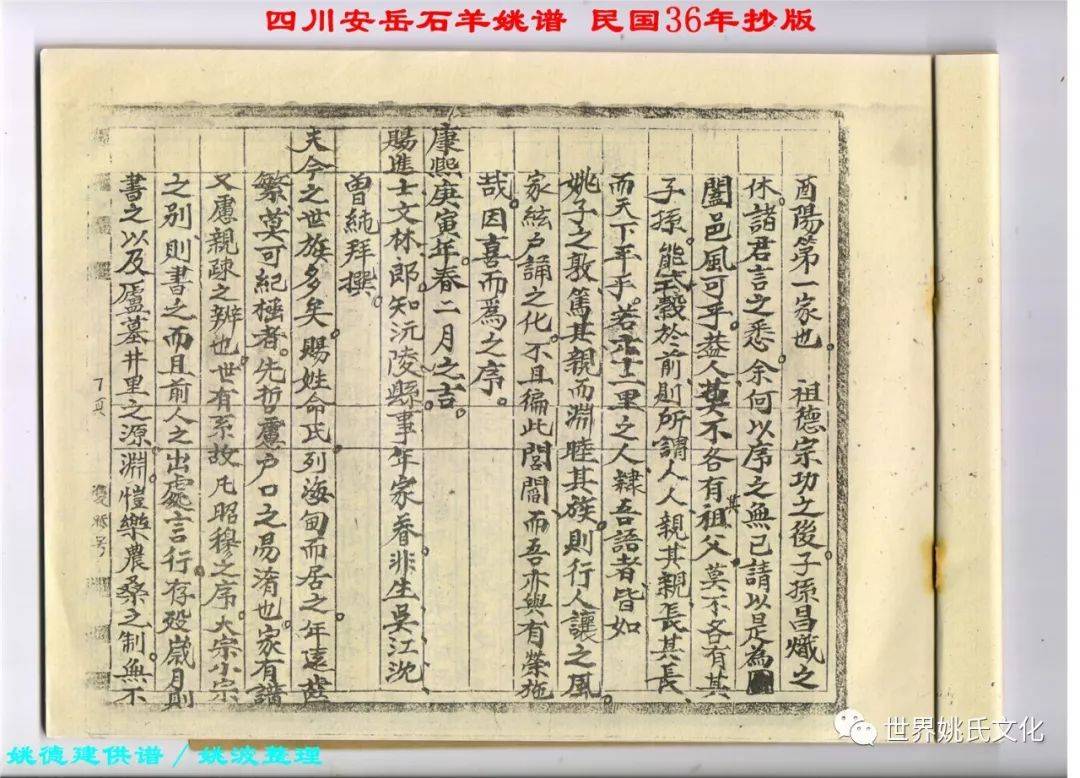 四川安岳石羊姚谱 民国36年抄版
酉陽第一家也。 祖德宗功之後。子孫昌熾之
休。諸君言之悉。余何以序之無已請以是為
闔邑風可乎。葢人莫不各有其祖父。莫不各有其
子孫。能式穀於前則所謂人人親其親長其長
而天下平乎。若 里之人隸吾語者皆如
姚子之敦篤其親而淵睦其族。則行人讓之風。
家絃户誦之化。不且徧此閭閻。而吾亦與有榮施
哉。因喜而為之序。
康熙庚寅年春二月之吉。
賜進士文林郎。知沅陵縣事年家眷 生吳江沈
曾純拜撰。
夫今之世族多矣。賜姓命氏。列海甸而居之。年遠
繁莫可紀極者。先哲慮户口之易淆也。家有譜
又慮親疎之辨也。世有系故凡昭穆之序。大宗小宗
之別。則書之而且前人之出處言行。存殁歲月則
書之以及廬墓井里之源淵。愷樂農桑之制。無不
姚德建供谱／姚波整理
世界姚氏文化